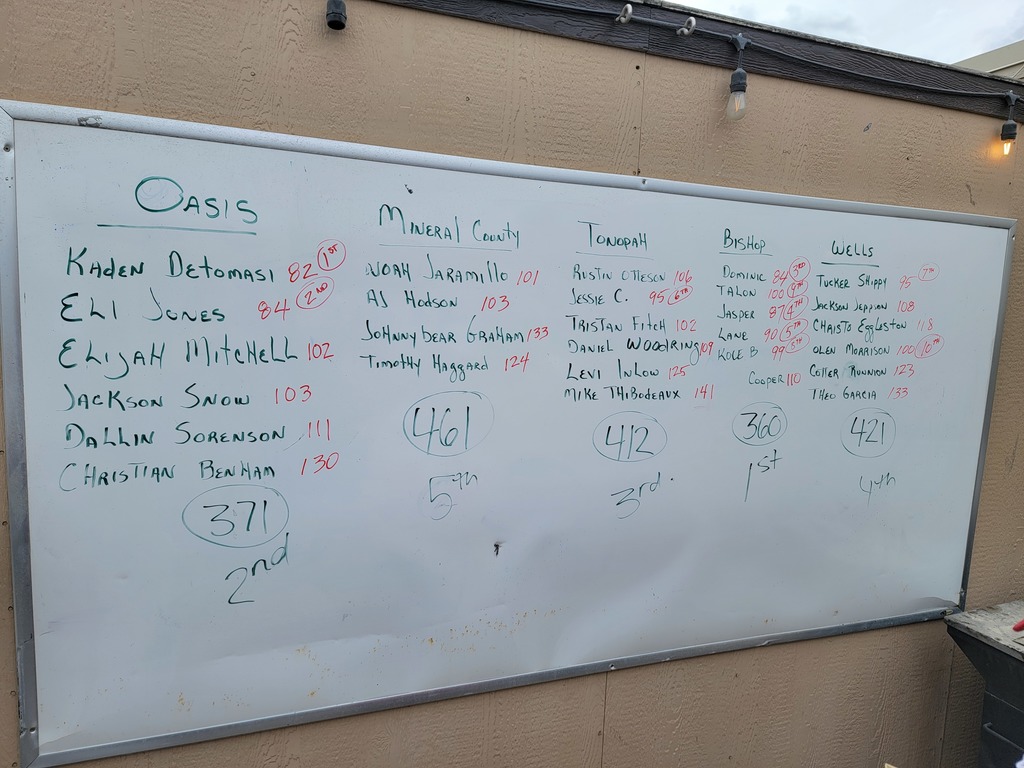 OASIS
KADEN DETOMASI 82 1ST
ELI JONES 84 2ND
ELIJAH MITCHELL 102
JACKSON SNOW 103
DALLIN SORENSON 111
CHRISTIAN BENHAM 130
371
2nd
MINERAL COUNTY
NOAH JARAMILLO 101
AJ HODSON 103
JOHNNYBEAR GRAHAM 133
TIMOTHY HAGGARD 124
461
5th
TONOPAH
RUSTIN OTTESON 106
JESSIE C. 95 6TH
TRISTAN FITCH 102
DANIEL WOODRING 109
LEVI INLOW 125
MIKE THIBODEAUX 141
412
3rd.
BISHOP
DOMINIC 84 3RD
TALON 100
JASPER 87 4TH
LANE 90 5TH
KOLE B 99
COOPER 110
360
1st
WELLS
TUCKER SHIPPY 95 7TH
JACKSON JEPPSON 108
CHRISTO EGGLESTON 118
OLEN MORRISON 100 10TH
COLTER RUNNION 123
THEO GARCIA 133
421
4th